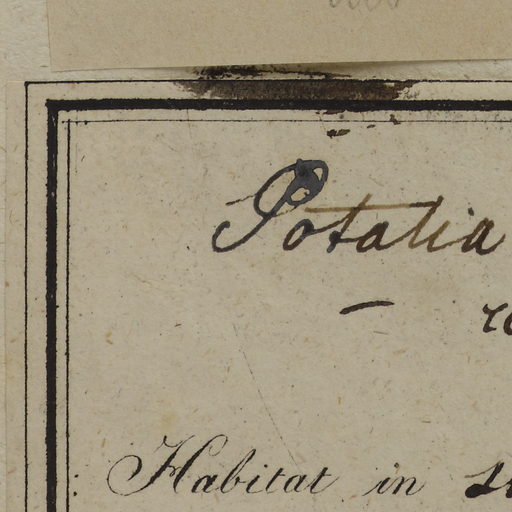 Potalia
—
Habitat in